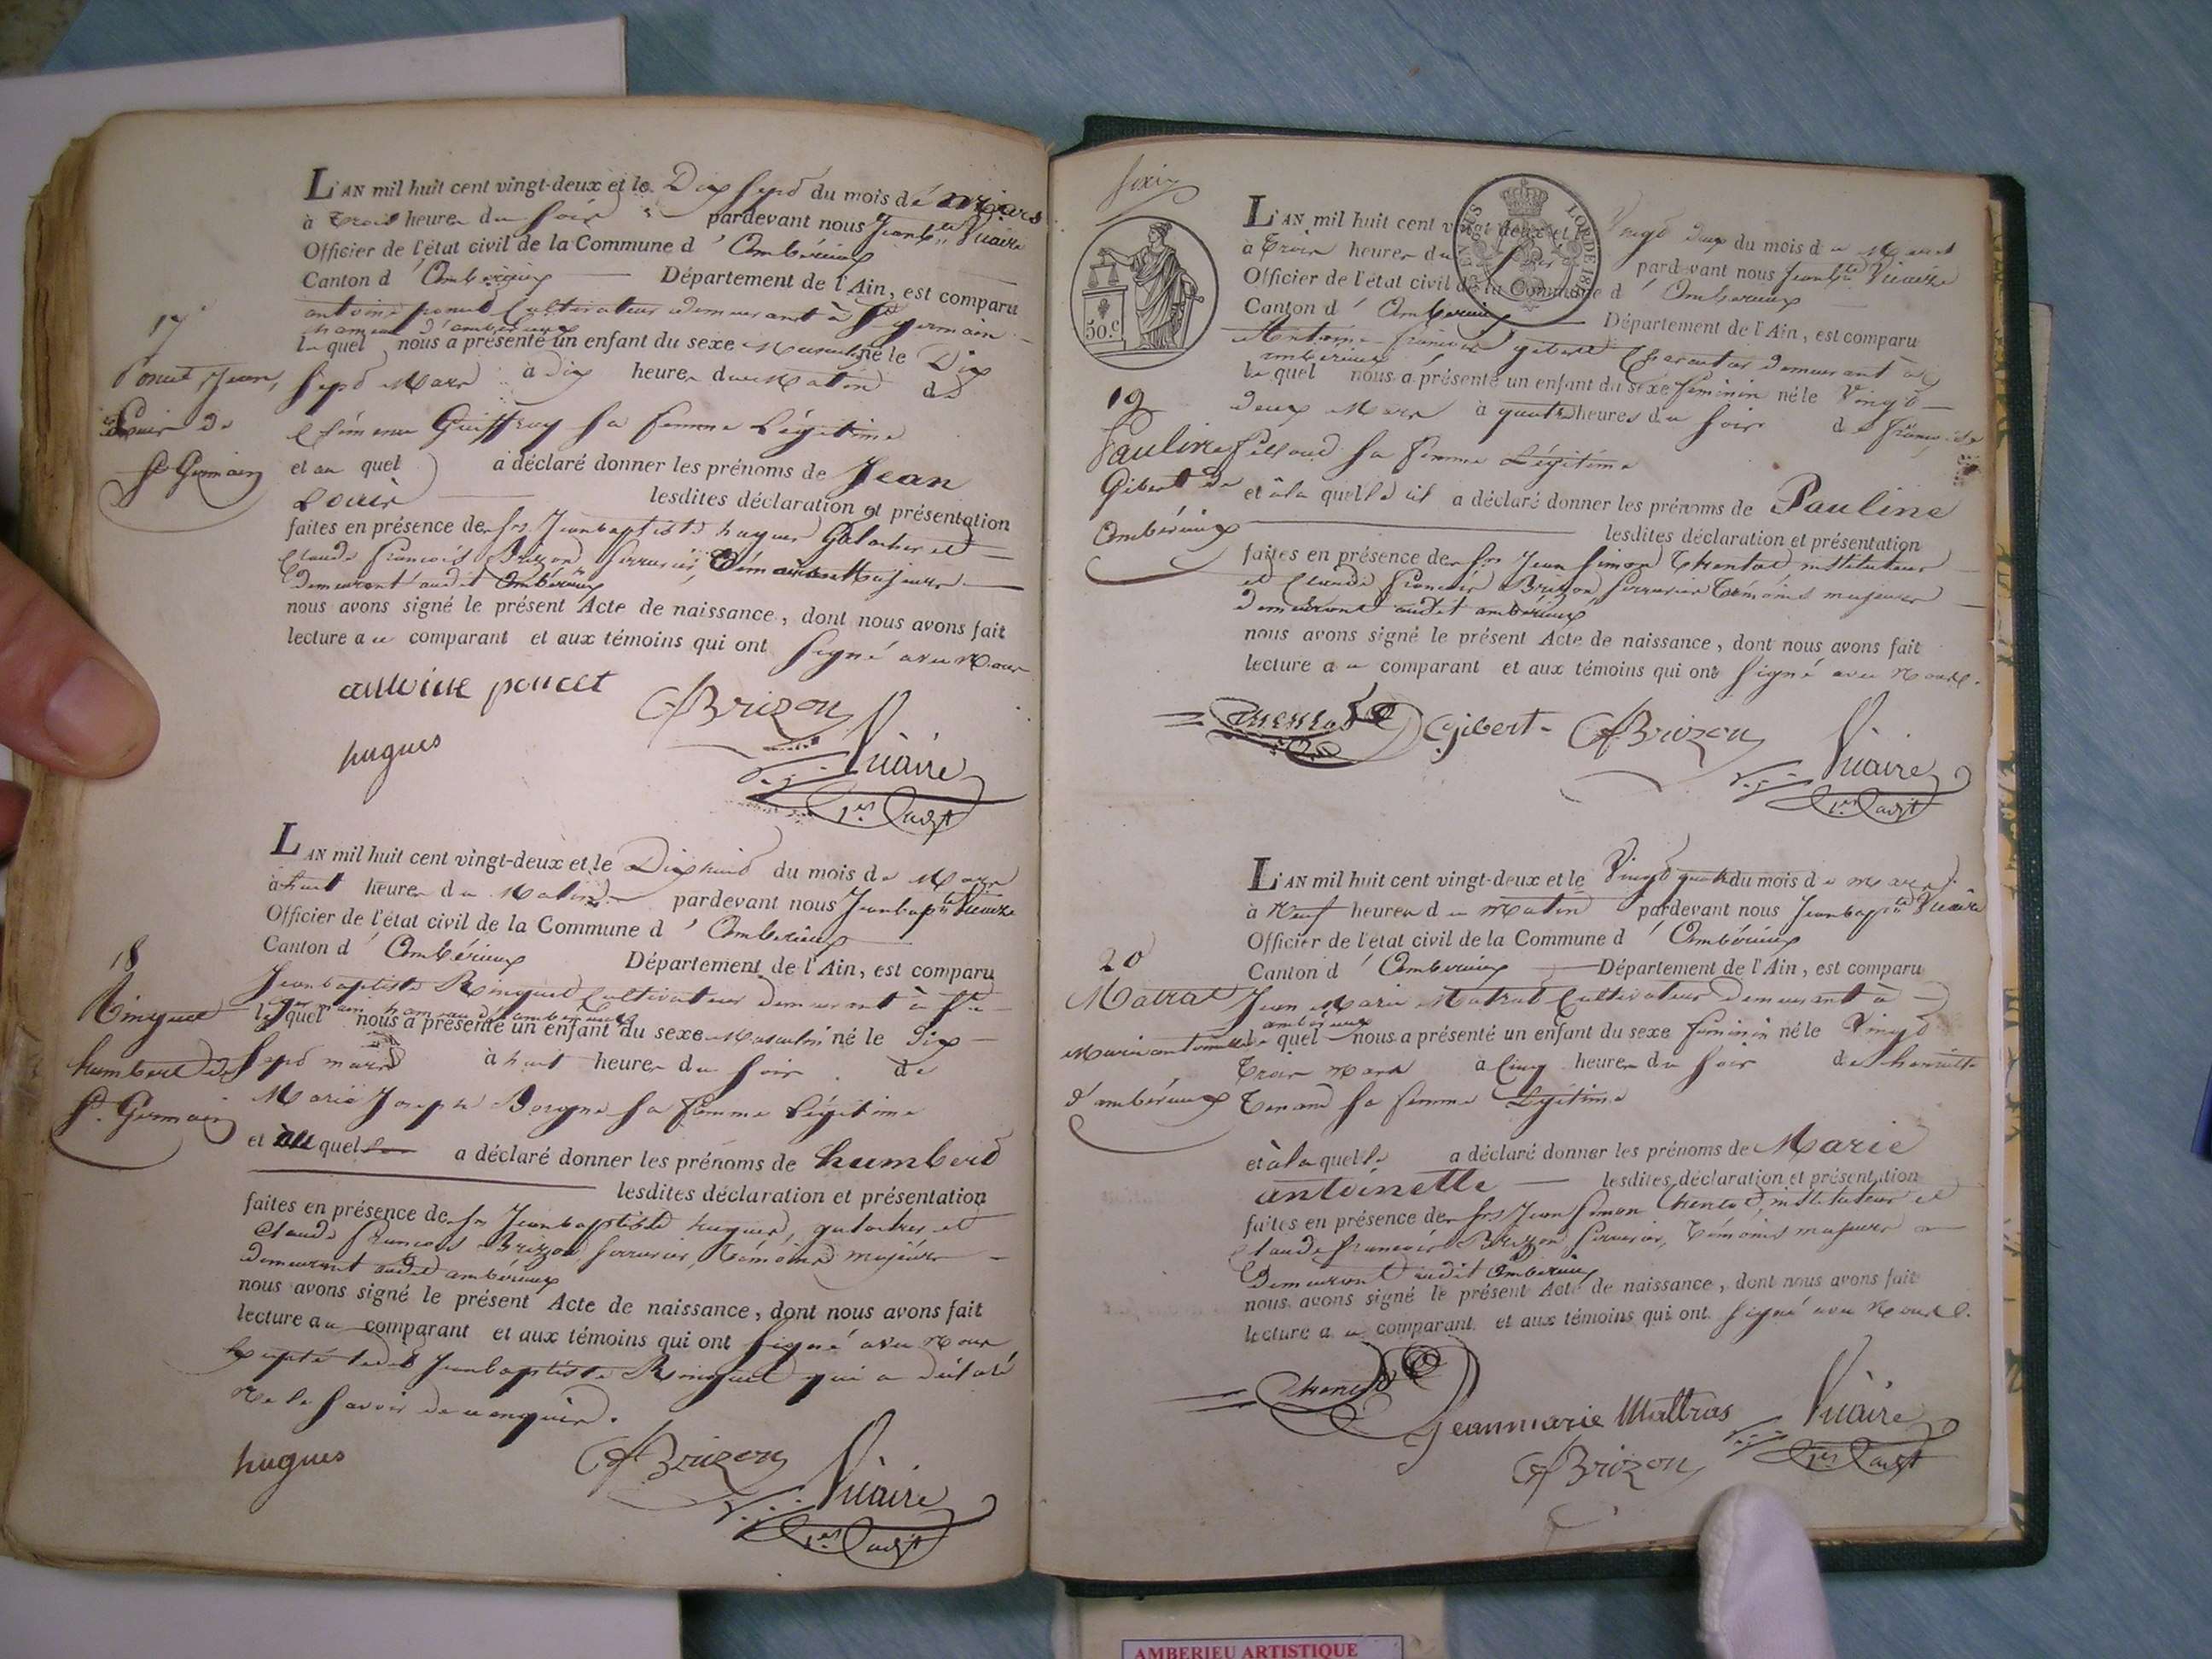 L'AN mil huit cent vingt-deux et le Dix Sept du mois de mars
à trois heures du Soir pardevant nous Jean Bte Vicaire
Officier de l'état civil de la Commune d'Ambérieux
Canton d'Ambérieux Département de l'Ain, est comparu
antoine poncet Cultivateur demeurant à St germain
hameau d'ambérieux
lequel nous a présenté un enfant du sexe Masculin né le Dix
17
Poncet, Jean,
Sept Mars à dix heures du Matin de
Louis de
Guiffray Sa femme Légitime
St Germain
et au quel a déclaré donner les prénoms de Jean
Louis lesdites déclaration et présentation
faites en présence des srs Jeanbaptiste hugues et
Claude françois Brizon Serrurier, témoins Majeurs
Demeurant audit Ambérieux
nous avons signé le présent Acte de naissance, dont nous avons fait
lecture au comparant et aux témoins qui ont Signé avec Nous
antoine poncet
CfBrizon
hugues
Vicaire
1er adjt
L'AN mil huit cent vingt-deux et le Dixhuit du mois de Mars
à huit heures du Matin pardevant nous Jeanbapte Vicaire
Officier de l'état civil de la Commune d'Ambérieux
Canton d'Ambérieux Département de l'Ain, est comparu
18
Jeanbaptiste Ringuet Cultivateur demeurant à St
germain hameau d'ambérieux
Ringuet
lequel nous a présenté un enfant du sexe Masculin né le Dix
humbert de
Sept mars à huit heures du Soir de
St Germain
Marie Joseph Sa femme Légitime
et au quel a déclaré donner les prénoms de humbert
lesdites déclaration et présentation
faites en présence des srs Jeanbaptiste hugues, et
Claude françois Brizon Serrurier, témoins majeurs
demeurant audit ambérieux
nous avons signé le présent Acte de naissance, dont nous avons fait
lecture au comparant et aux témoins qui ont Signé avec Nous
Excepté ledit Jeanbaptiste Ringuet qui a déclaré
Ne le Savoir de ce enquis.
hugues
CfBrizon
Vicaire
1er adjt
50.c
L'AN mil huit cent vingt-deux et le Vingt deux du mois de Mars
à trois heures du Soir pardevant nous Jeanbte Vicaire
Officier de l'état civil de la Commune d'Ambérieux
Canton d'Ambérieux Département de l'Ain, est comparu
Antoine françois gibert demeurant à
ambérieux
lequel nous a présenté un enfant du sexe féminin né le Vingt
19
deux Mars à quatre heures du Soir de françoise
Pauline
Sa femme Légitime
Gibert de
et à la quelle il a déclaré donner les prénoms de Pauline
Ambérieux
lesdites déclaration et présentation
faites en présence des srs Jean Simon instituteur
et Claude françois Brizon Serrurier témoins majeurs
demeurant audit ambérieux
nous avons signé le présent Acte de naissance, dont nous avons fait
lecture au comparant et aux témoins qui ont Signé avec Nous.
Gibert
CfBrizon
Vicaire
1er adjt
L'AN mil huit cent vingt-deux et le Vingt quatre du mois de mars
à Neuf heures du Matin pardevant nous Jeanbapte Vicaire
Officier de l'état civil de la Commune d'Ambérieux
20
Canton d'Ambérieux Département de l'Ain, est comparu
Matrat
Jean Marie Matrat Cultivateur Demeurant à
ambérieux
Marie antoinette
lequel nous a présenté un enfant du sexe féminin né le Vingt
Trois Mars à Cinq heures du Soir de henriette
d'ambérieux
Tenand Sa femme Légitime
et à la quelle a déclaré donner les prénoms de Marie
antoinette lesdites déclaration et présentation
faites en présence des srs Jean Simon instituteur et
Claude françois Brizon Serrurier, témoins majeurs
Demeurant audit Ambérieux
nous avons signé le présent Acte de naissance, dont nous avons fait
lecture au comparant et aux témoins qui ont Signé avec Nous.
Jeanmarie Mattras
Vicaire
CfBrizon
1er adjt
AMBERIEU ARTISTIQUE